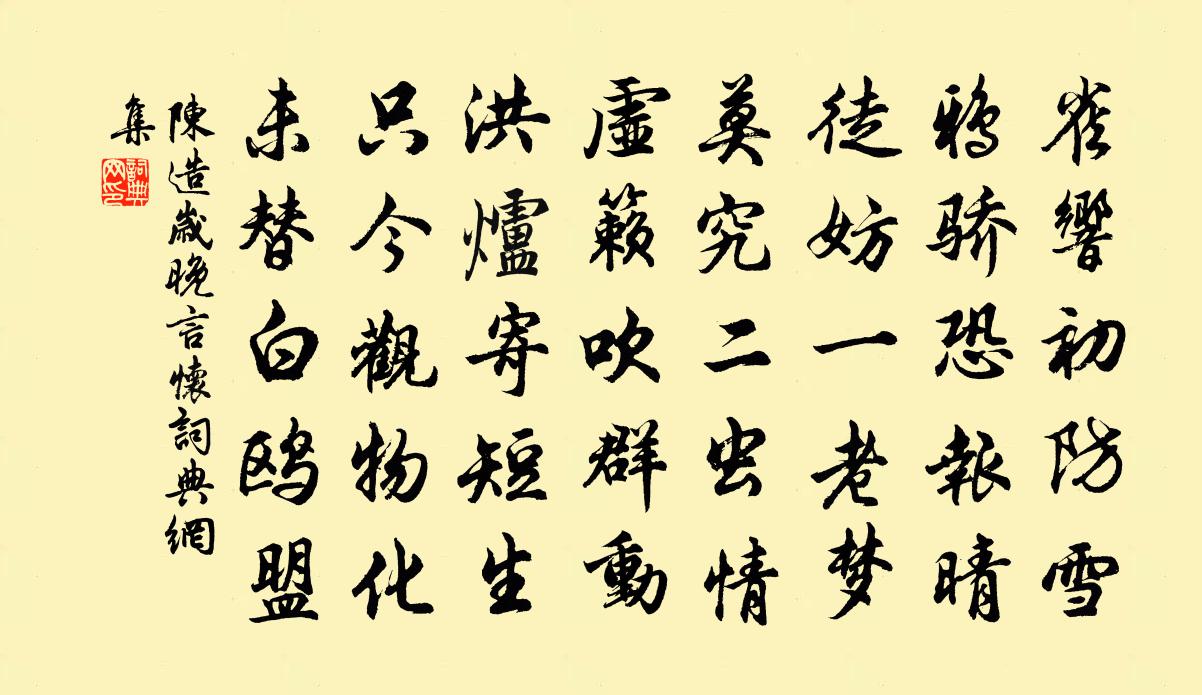 雀響初防雪
鸦骄恐報晴
徒妨一老梦
莫究二虫情
虛籟吹群動
洪爐寄短生
只今觀物化
未替白鸥盟
陳造歲晚言懷詞典網
集
詞典
网印